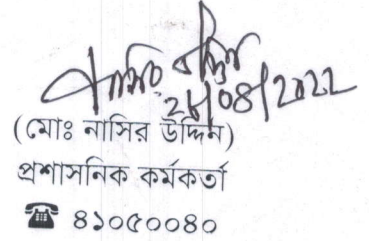 নাসির উদ্দিন
28/08/2022
(মোঃ নাসির উদ্দিন)
প্রশাসনিক কর্মকর্তা
☎ ৪১০৫০০৪০